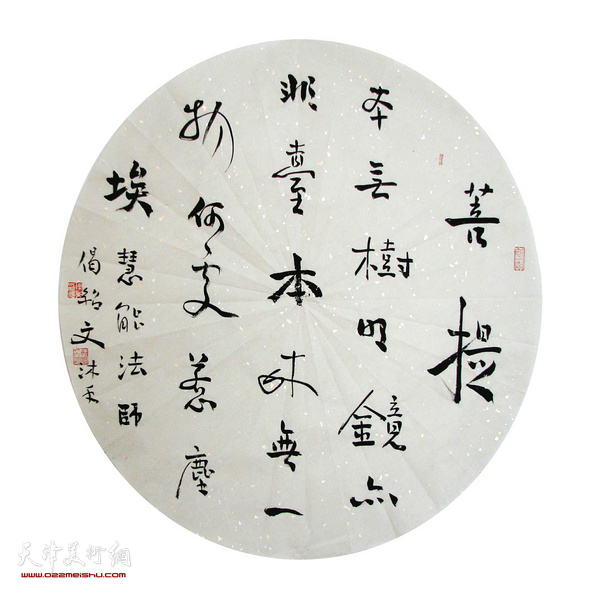 菩提
本无樹明鏡亦
非臺本来無一
物何處惹塵
埃 慧能法師
偈 文沐手
天津美术網
www.022meishu.com